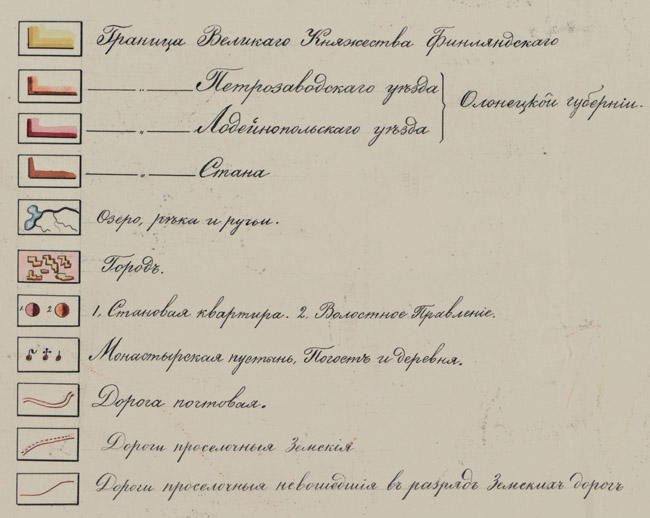 Граница Великаго Княжества Финляндскаго
——— „ ——— Петрозаводскаго уѣзда
Олонецкой губерніи.
——— „ ——— Лодейнопольскаго уѣзда
——— „ ——— Стана
Озеро, рѣка и ручьи.
Городъ.
1 2 1, Становая квартира. 2, Волостное Правленіе.
Монастырская пустынь, Погостъ и деревня.
Дорога почтовая.
Дороги проселочныя Земскія
Дороги проселочныя невошедшія въ разрядъ Земскихъ дорогъ